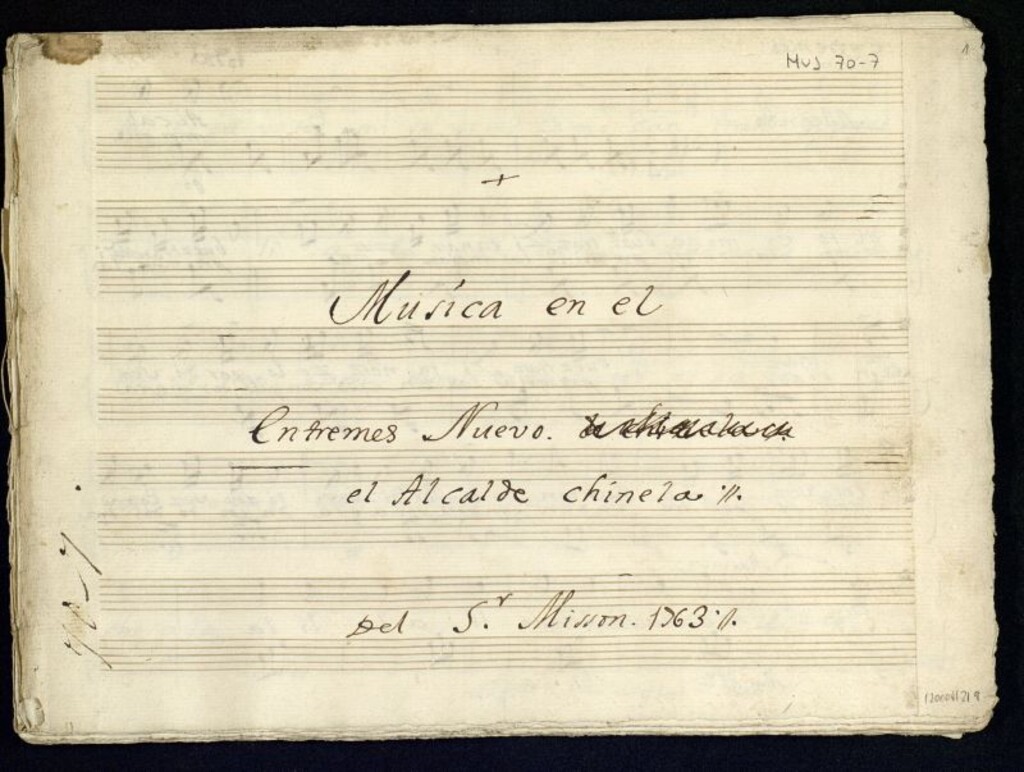 1
Mus 70-7
+
Musica en el
Entremes Nuevo.
el Alcalde chinela.//.
Del S.r Misson. 1763//.
70-7